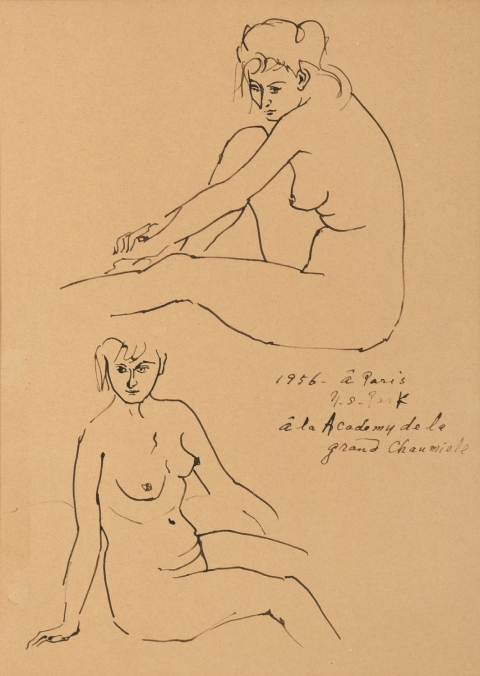 1956- â Paris
Y. S. Park
â la Academy de le
grand Chaumiele